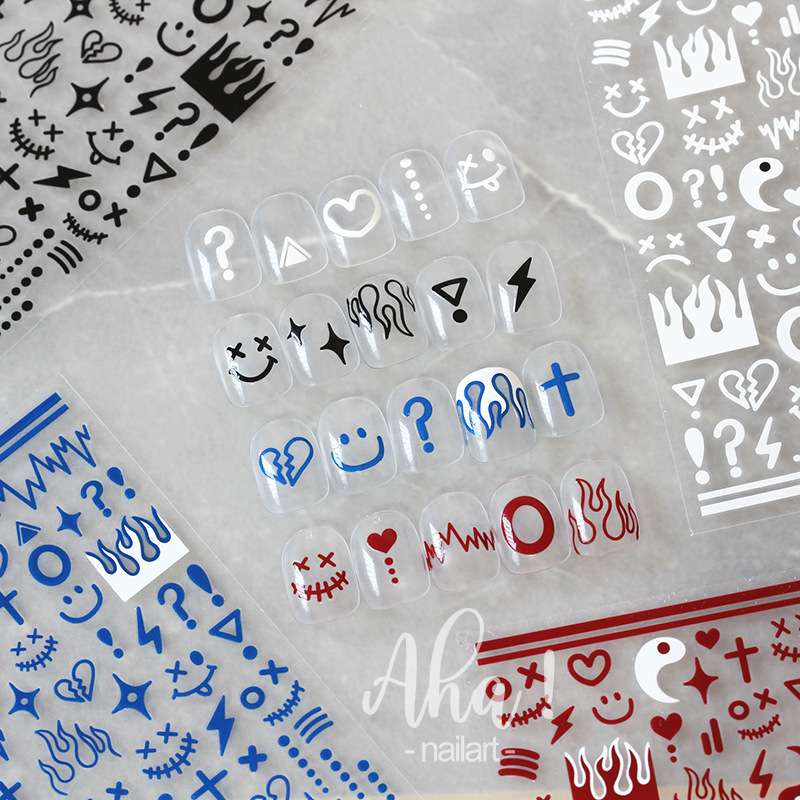 Aha!
- nailart -